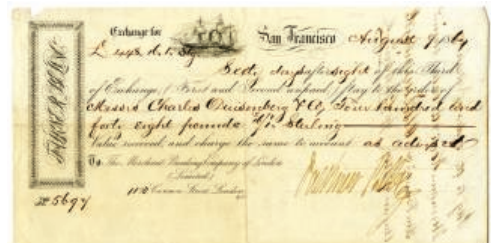 Exchange for San Francisco August 9 1864
£ 448 Stg
Sixty days after sight of this Third
of Exchange (First and Second unpaid) Pay to the Order of
Messrs Charles Duisenberg & Co, Four hundred and
forty eight pounds Sterling
Value received and charge the same to account as advised
To The Merchant Banking Company of London
(Limited)
112 Cannon Street London
№ 5697